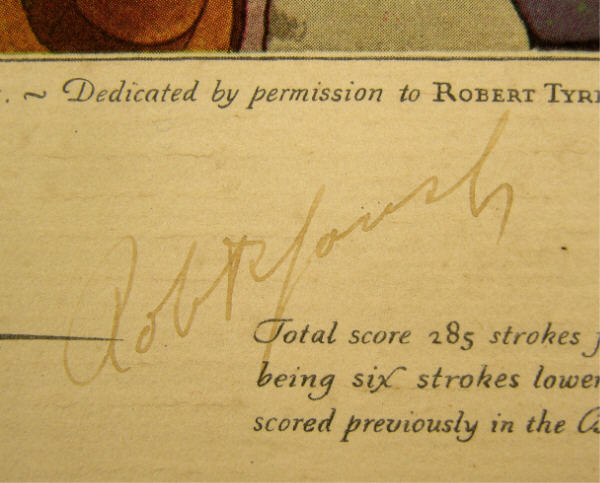 . ~ Dedicated by permission to ROBERT TYR
Robt T Jones Jr
Total score 285 strokes f
being six strokes lower
scored previously in the